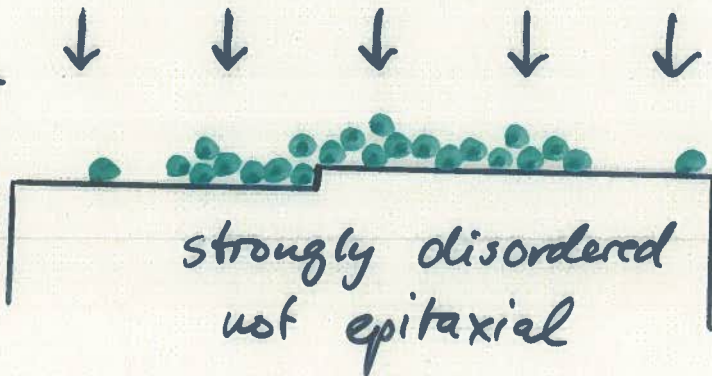 strongly disordered
not epitaxial